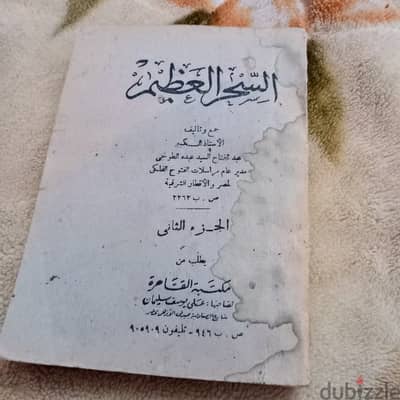 السحر العظيم
جمع وتأليف
الأستاذ
عبد الفتاح السيد عبده الطوخي
مدير عام مراسلات الفتوح الفلكي
لمصر والأقطار الشرقية
ص . ب ٢٢٦٣
الجزء الثانى
يطلب من
مكتبة القاهرة
لصاحبها : على يوسف سليمان
شارع الصنادقية بميدان الأزهر بمصر
ص . ب ٩٤٦ - تليفون ٩٠٥٩٠٩
dubizzle